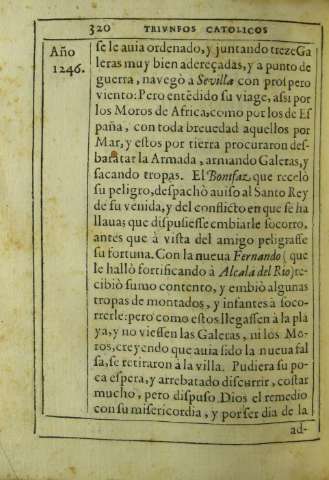 320 TRIVNFOS CATOLICOS
Año
1246.
se le auia ordenado, y juntando treze Ga
leras muy bien adereçadas, y a punto de
guerra, navegò a Sevilla con prospero
viento: Pero entẽdido su viage, assi por
los Moros de Africa, como por los de Es
paña, con toda breuedad aquellos por
Mar, y estos por tierra procuraron des-
baratar la Armada, armando Galeras, y
sacando tropas. El Bonifaz que recelò
su peligro, despachò auiso al Santo Rey
de su venida, y del conflicto en que se ha
llaua; que dispusiesse embiarle socorro,
antes que à vista del amigo peligrasse
su fortuna. Con la nueua Fernando (que
le hallò fortificando à Alcala del Rio) re-
cibiò sumo contento, y embiò algunas
tropas de montados, y infantes à soco-
rrerle: pero como estos llegassen à la pla
ya, y no viessen las Galeras, ni los Mo-
ros, creyendo que auia sido la nueua fal
sa, se retiraron à la villa. Pudiera su po-
ca espera, y arrebatado discurrir, costar
mucho, pero dispuso Dios el remedio
con su misericordia, y por ser dia de la
ad-